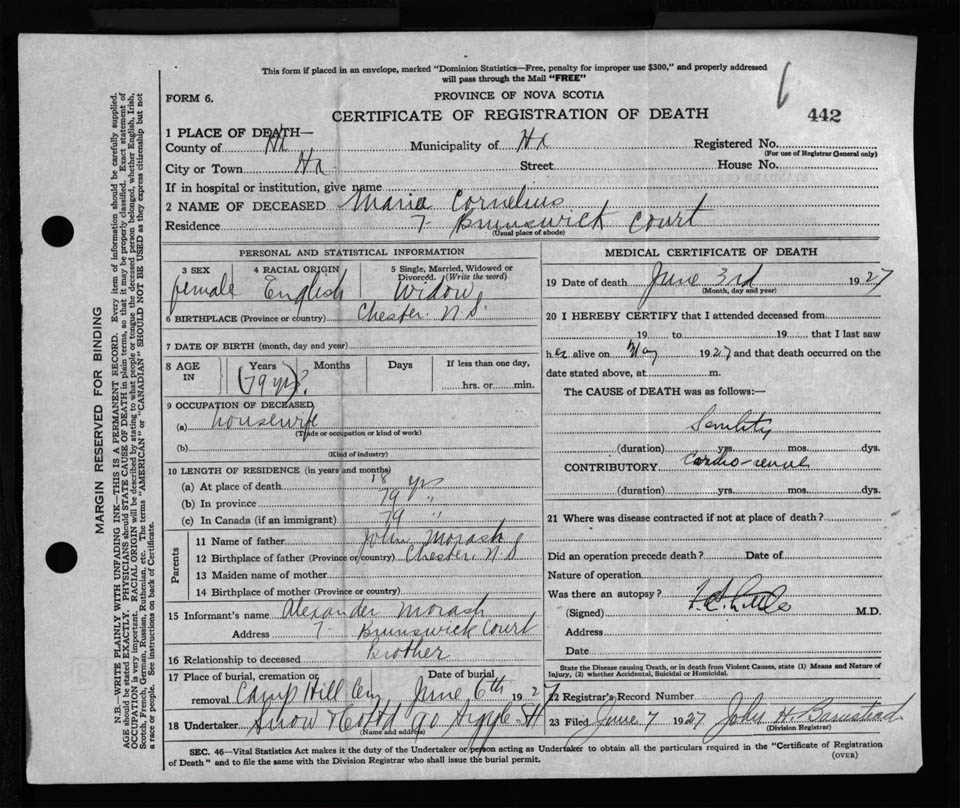 This form if placed in an envelope, marked "Dominion Statistics—Free, penalty for improper use $300," and properly addressed
will pass through the Mail "FREE"
FORM 6.
PROVINCE OF NOVA SCOTIA
CERTIFICATE OF REGISTRATION OF DEATH
442
1 PLACE OF DEATH—
County of Hx Municipality of Hx Registered No.
(For use of Registrar General only)
City or Town Hx Street House No.
If in hospital or institution, give name
2 NAME OF DECEASED Maria Cornelius
Residence 7 - Brunswick Court
(Usual place of abode)
PERSONAL AND STATISTICAL INFORMATION
3 SEX female
4 RACIAL ORIGIN English
5 Single, Married, Widowed or
Divorced. (Write the word)
Widow
6 BIRTHPLACE (Province or country) Chester. N.S.
7 DATE OF BIRTH (month, day and year)
8 AGE IN Years Months Days If less than one day,
(79 yrs). hrs. or min.
9 OCCUPATION OF DECEASED
(a) housewife
(Trade or occupation or kind of work)
(b)
(Kind of industry)
10 LENGTH OF RESIDENCE (in years and months)
(a) At place of death 18 yrs
(b) In province 79 "
(c) In Canada (if an immigrant) 79 "
Parents
11 Name of father John Morash
12 Birthplace of father (Province or country) Chester, N.S
13 Maiden name of mother
14 Birthplace of mother (Province or country)
15 Informant's name Alexander Morash
Address 7 - Brunswick Court
16 Relationship to deceased Brother
17 Place of burial, cremation or
removal Camp Hill Cem
Date of burial
June 6th 1927
18 Undertaker Snow & Co Ltd 90 Argyle St
(Name and address)
MEDICAL CERTIFICATE OF DEATH
19 Date of death June 3rd 1927
(Month, day and year)
20 I HEREBY CERTIFY that I attended deceased from
19 to 19 that I last saw
her alive on May 1927 and that death occurred on the
date stated above, at m.
The CAUSE of DEATH was as follows:
Senility
(duration) yrs. mos. dys.
CONTRIBUTORY Cardio-renal
(duration) yrs. mos. dys.
21 Where was disease contracted if not at place of death?
Did an operation precede death? Date of
Nature of operation
Was there an autopsy?
(Signed) M.D.
Address
Date
State the Disease causing Death, or in death from Violent Causes, state (1) Means and Nature of
Injury, (2) whether Accidental, Suicidal or Homicidal.
22 Registrar's Record Number
23 Filed June 7 1927 John H. Barnstead
(Division Registrar)
SEC. 46—Vital Statistics Act makes it the duty of the Undertaker or person acting as Undertaker to obtain all the particulars required in the "Certificate of Registration
of Death" and to file the same with the Division Registrar who shall issue the burial permit.
(OVER)
MARGIN RESERVED FOR BINDING
N.B.—WRITE PLAINLY WITH UNFADING INK—THIS IS A PERMANENT RECORD. Every item of information should be carefully supplied.
AGE should be stated EXACTLY. PHYSICIANS should STATE CAUSE OF DEATH in plain terms, so that it may be properly classified. Exact statement of
OCCUPATION is very important. RACIAL ORIGIN will be described by stating to what people or tongue the deceased person belonged, whether English, Irish,
Scotch, French, German, Russian, Ruthenian, etc. The terms "AMERICAN" or "CANADIAN" SHOULD NOT BE USED as they express citizenship but not
a race or people. See instructions on back of Certificate.